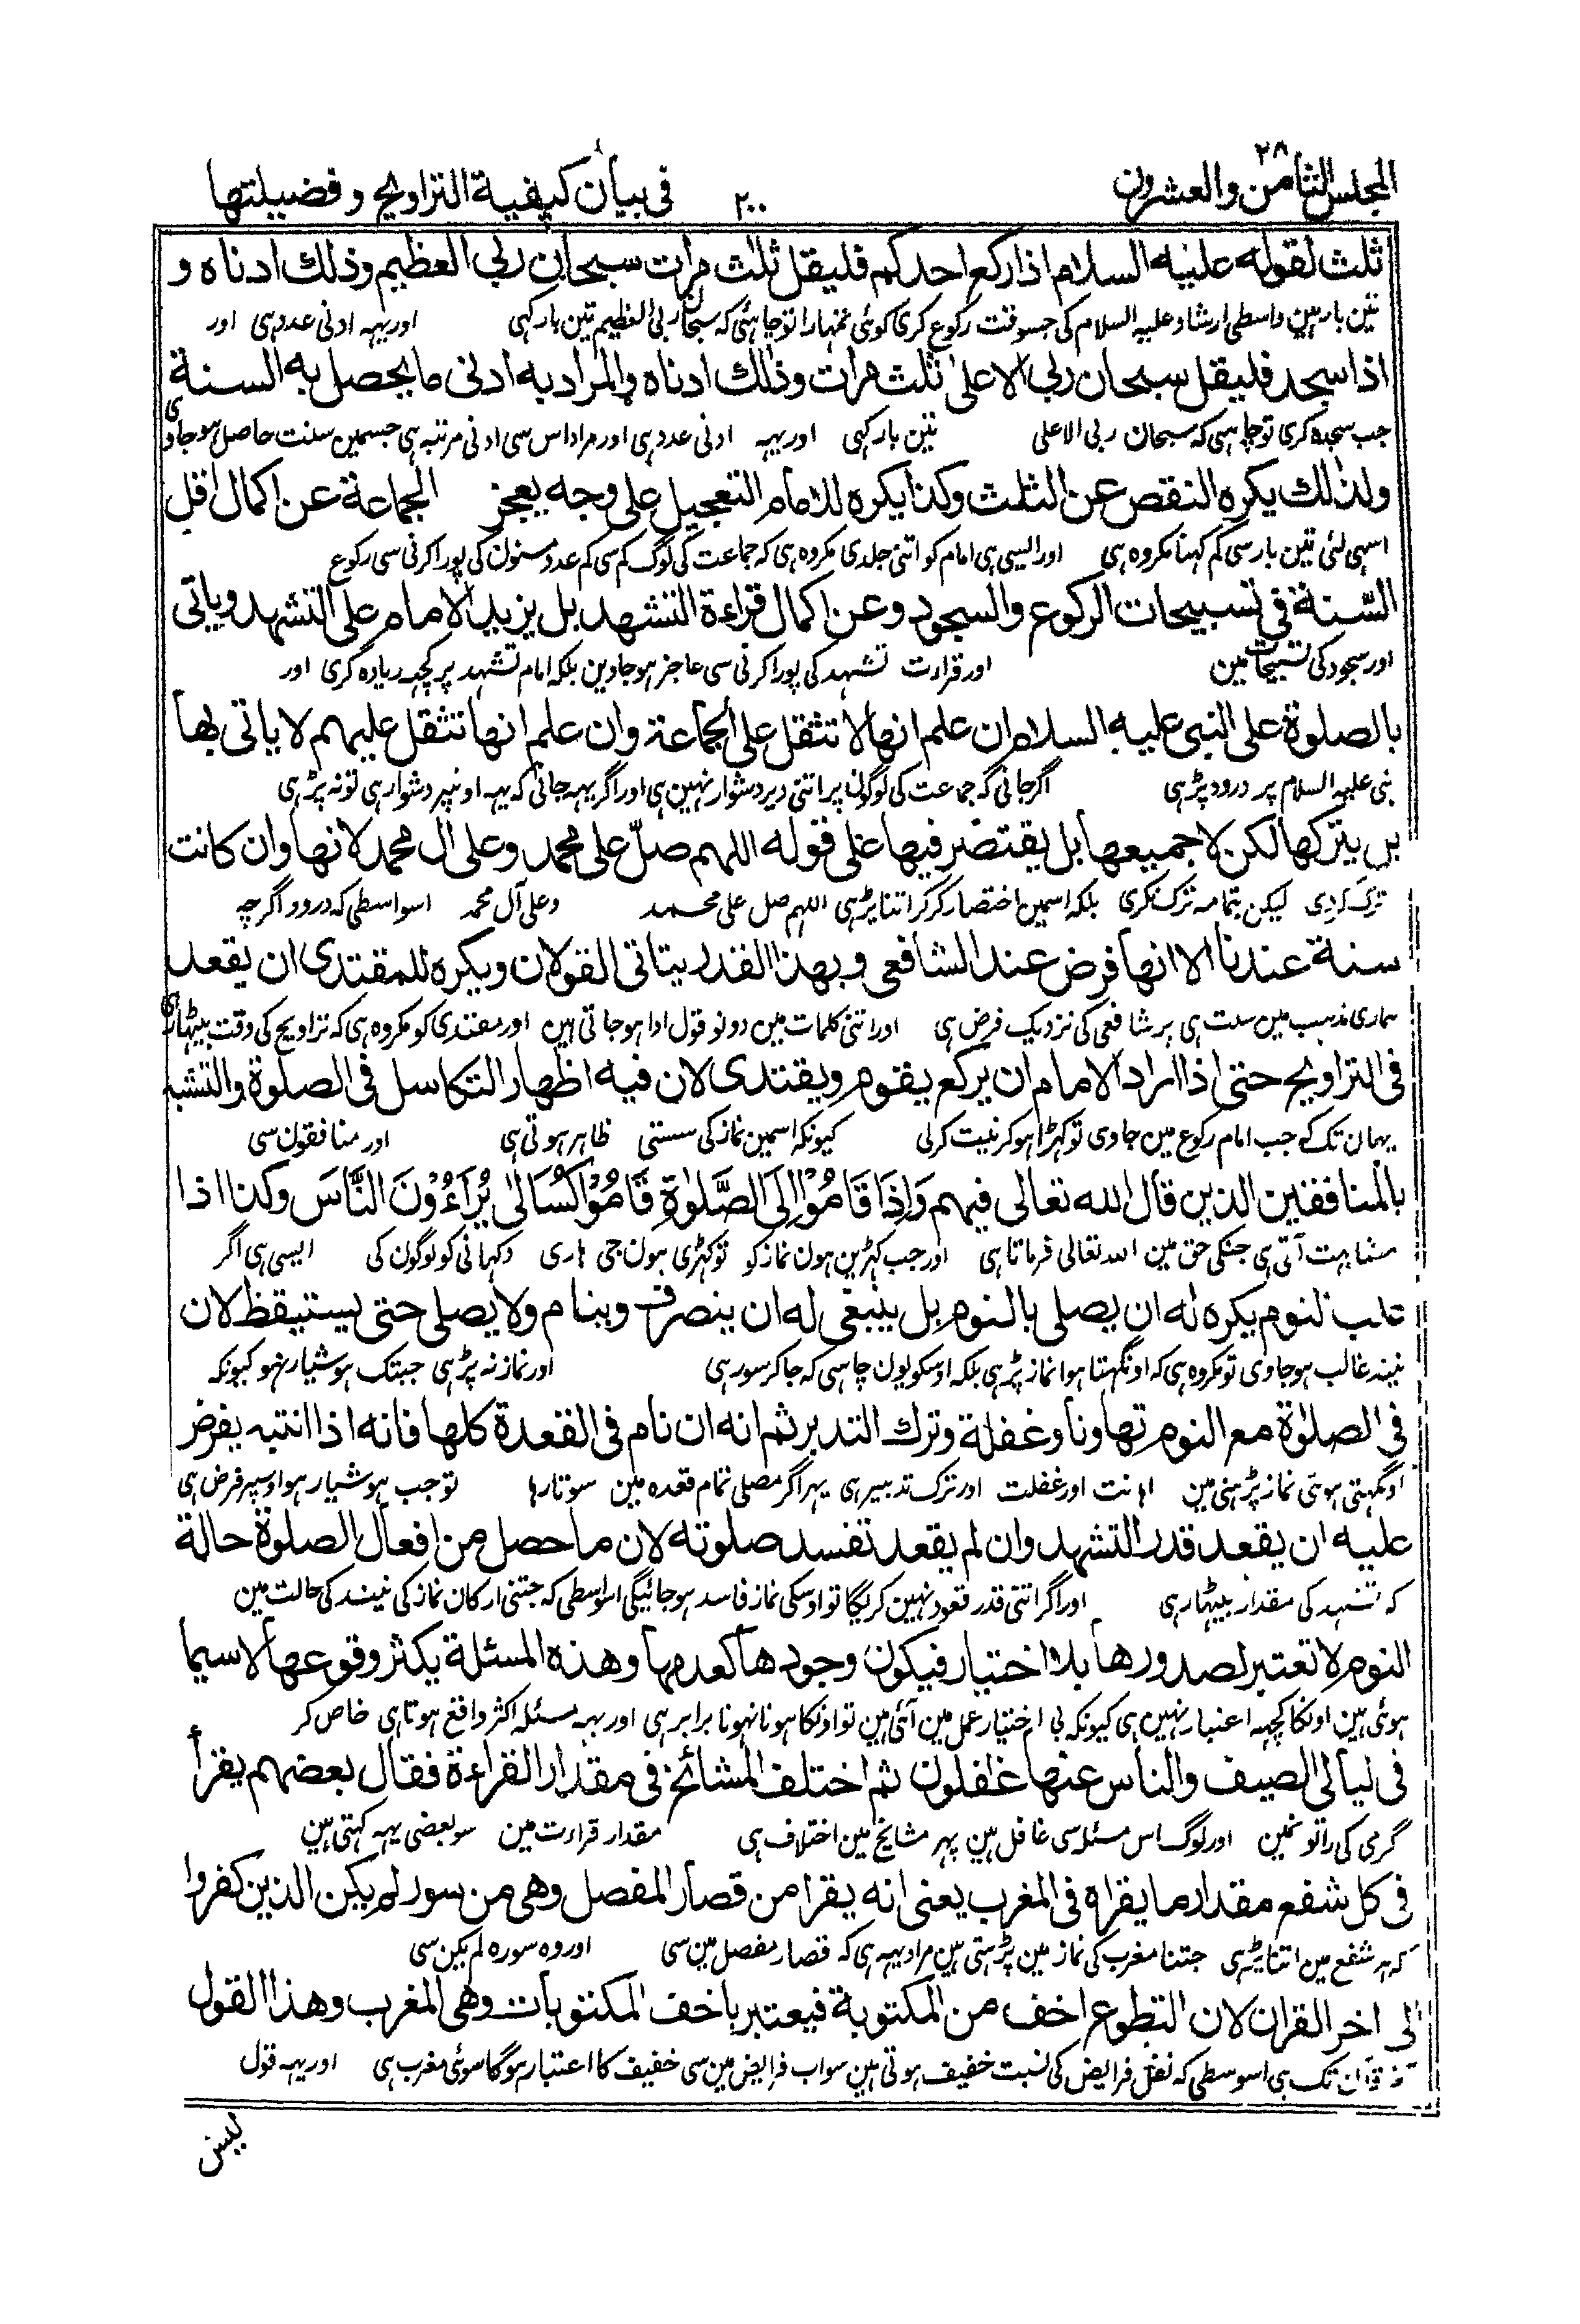 المجلس الثامن والعشرون ٢٨
٢٠٠
في بيان كيفية التراويح وفضيلتها
ثلث لقوله عليه السلام اذا ركع احدكم فليقل ثلث مرات سبحان ربي العظيم وذلك ادناه و
تین بار ہین واسطی ارشاد علیہ السلام کی جسوقت رکوع کری کوئی تمہارا تو چاہئی کہ سبحان ربی العظیم تین بار کہی اور یہہ ادنی عدد ہی اور
اذا سجد فليقل سبحان ربي الاعلى ثلث مرات وذلك ادناه والمراد به ادنى ما يحصل به السنة
جب سجدہ کری تو چاہی کہ سبحان ربی الاعلی تین بار کہی اور یہہ ادنی عدد ہی اور مراد اس سی ادنی مرتبہ ہی جسمین سنت حاصل ہو جاوی
ولذلك يكره النقص عن الثلث وكذا يكره للامام التعجيل على وجه يعجز الجماعة عن اكمال اقل
اسہی لئی تین بار سی کم کہنا مکروہ ہی اور ایسی ہی امام کو اتنی جلدی مکروہ ہی کہ جماعت کی لوگ کم سی کم عدد مسنون کی پورا کرنی سی رکوع
السّنة في تسبيحات الركوع والسجود وعن اكمال قراءة التشهد بل يزيد الامام على التشهد وياتى
اور سجود کی تسبیحات مین اور قراءت تشہد کی پورا کرنی سی عاجز ہو جاوین بلکہ امام تشہد پر کچہہ زیادہ کری اور
بالصلوة على النبى عليه السلام ان علم انها لا تثقل على الجماعة وان علم انها تثقل عليهم لا ياتى بها
نبی علیہ السلام پر درود پڑہی اگر جانی کہ جماعت کی لوگون پر اتنی دیر دشوار نہین ہی اور اگر یہہ جانی کہ یہہ اونپر دشوار ہی تو نہ پڑہی
بل يتركها لكن لا جميعها بل يقتصر فيها على قوله اللهم صلّ على محمد وعلى ال محمد لانها وان كانت
ترک کردی لیکن بتمامہ ترک نکری بلکہ اسمین اختصار کر کر اتنا پڑہی اللہم صل علی محمد وعلی آل محمد اسواسطی کہ درود اگرچہ
سنة عندنا الا انها فرض عند الشافعي وبهذا القدر يتاتى القولان ويكره للمقتدى ان يقعد
ہماری مذہب مین سنت ہی پر شافعی کی نزدیک فرض ہی اور اتنی کلمات مین دونو قول ادا ہو جاتی ہین اور مقتدی کو مکروہ ہی کہ تراویح کی وقت بیٹہا رہی
في التراويح حتى اذا اراد الامام ان يركع يقوم ويقتدى لان فيه اظهار التكاسل في الصلوة والتشبه
یہان تک کہ جب امام رکوع مین جاوی تو کہڑا ہو کر نیت کر لی کیونکہ اسمین نماز کی سستی ظاہر ہوتی ہی اور منافقون سی
بالمنافقين الذين قال الله تعالى فيهم وَاِذَا قَامُوْا اِلَى الصَّلٰوةِ قَامُوْا كُسَالٰى يُرَآءُوْنَ النَّاسَ وكذا اذا
مشابہت آتی ہی جنکی حق مین اللہ تعالی فرماتا ہی اور جب کہڑین ہون نماز کو تو کہڑی ہون جی ہاری دکہانی کو لوگون کی ایسی ہی اگر
غلب النوم يكره له ان يصلى بالنوم بل ينبغى له ان ينصرف وينام ولا يصلى حتى يستيقظ لان
نیند غالب ہو جاوی تو مکروہ ہی کہ اونگہتا ہوا نماز پڑہی بلکہ اوسکو یون چاہی کہ جا کر سو رہی اور نماز نہ پڑہی جبتک ہوشیار نہو کیونکہ
في الصلوة مع النوم تهاونا وغفلة وترك التدبر ثم انه ان نام في القعدة كلها فانه اذا انتبه يفرض
اونگہتی ہوئی نماز پڑہنی مین اہانت اور غفلت اور ترک تدبیر ہی پہر اگر مصلی تمام قعدہ مین سوتا رہا تو جب ہوشیار ہوا اوسپر فرض ہی
عليه ان يقعد قدر التشهد وان لم يقعد تفسد صلوته لان ما حصل من افعال الصلوة حالة
کہ تشہد کی مقدار بیٹہا رہی اور اگر اتنی قدر قعود نہین کریگا تو اوسکی نماز فاسد ہو جائیگی اسواسطی کہ جتنی ارکان نماز کی نیند کی حالت مین
النوم لا تعتبر لصدورها بلا اختيار فيكون وجودها كعدمها وهذه المسئلة يكثر وقوعها لا سيما
ہوئی ہین اونکا کچہہ اعتبار نہین ہی کیونکہ بی اختیار عمل مین آئی ہین تو اونکا ہونا نہونا برابر ہی اور یہہ مسئلہ اکثر واقع ہوتا ہی خاص کر
في ليالى الصيف والناس عنها غافلون ثم اختلف المشائخ في مقدار القراءة فقال بعضهم يقرأ
گرمی کی راتونمین اور لوگ اس مسئلہ سی غافل ہین پہر مشایخ مین اختلاف ہی مقدار قراءت مین سو بعضی یہہ کہتی ہین
في كل شفع مقدار ما يقراه في المغرب يعنى انه يقرا من قصار المفصل وهي من سورة لم يكن الذين كفروا
کہ ہر شفع مین اتنا پڑہی جتنا مغرب کی نماز مین پڑہتی ہین مراد یہہ ہی کہ قصار مفصل مین سی اور وہ سورہ لم یکن سی
الى اخر القران لان التطوع اخف من المكتوبة فيعتبر باخف المكتوبات وهي المغرب وهذا القول
قرآن تک ہی اسوسطی کہ نفل فرایض کی نسبت خفیف ہوتی ہین سو اب فرایض مین سی خفیف کا اعتبار ہوگا سوئی مغرب ہی اور یہہ قول
ليس